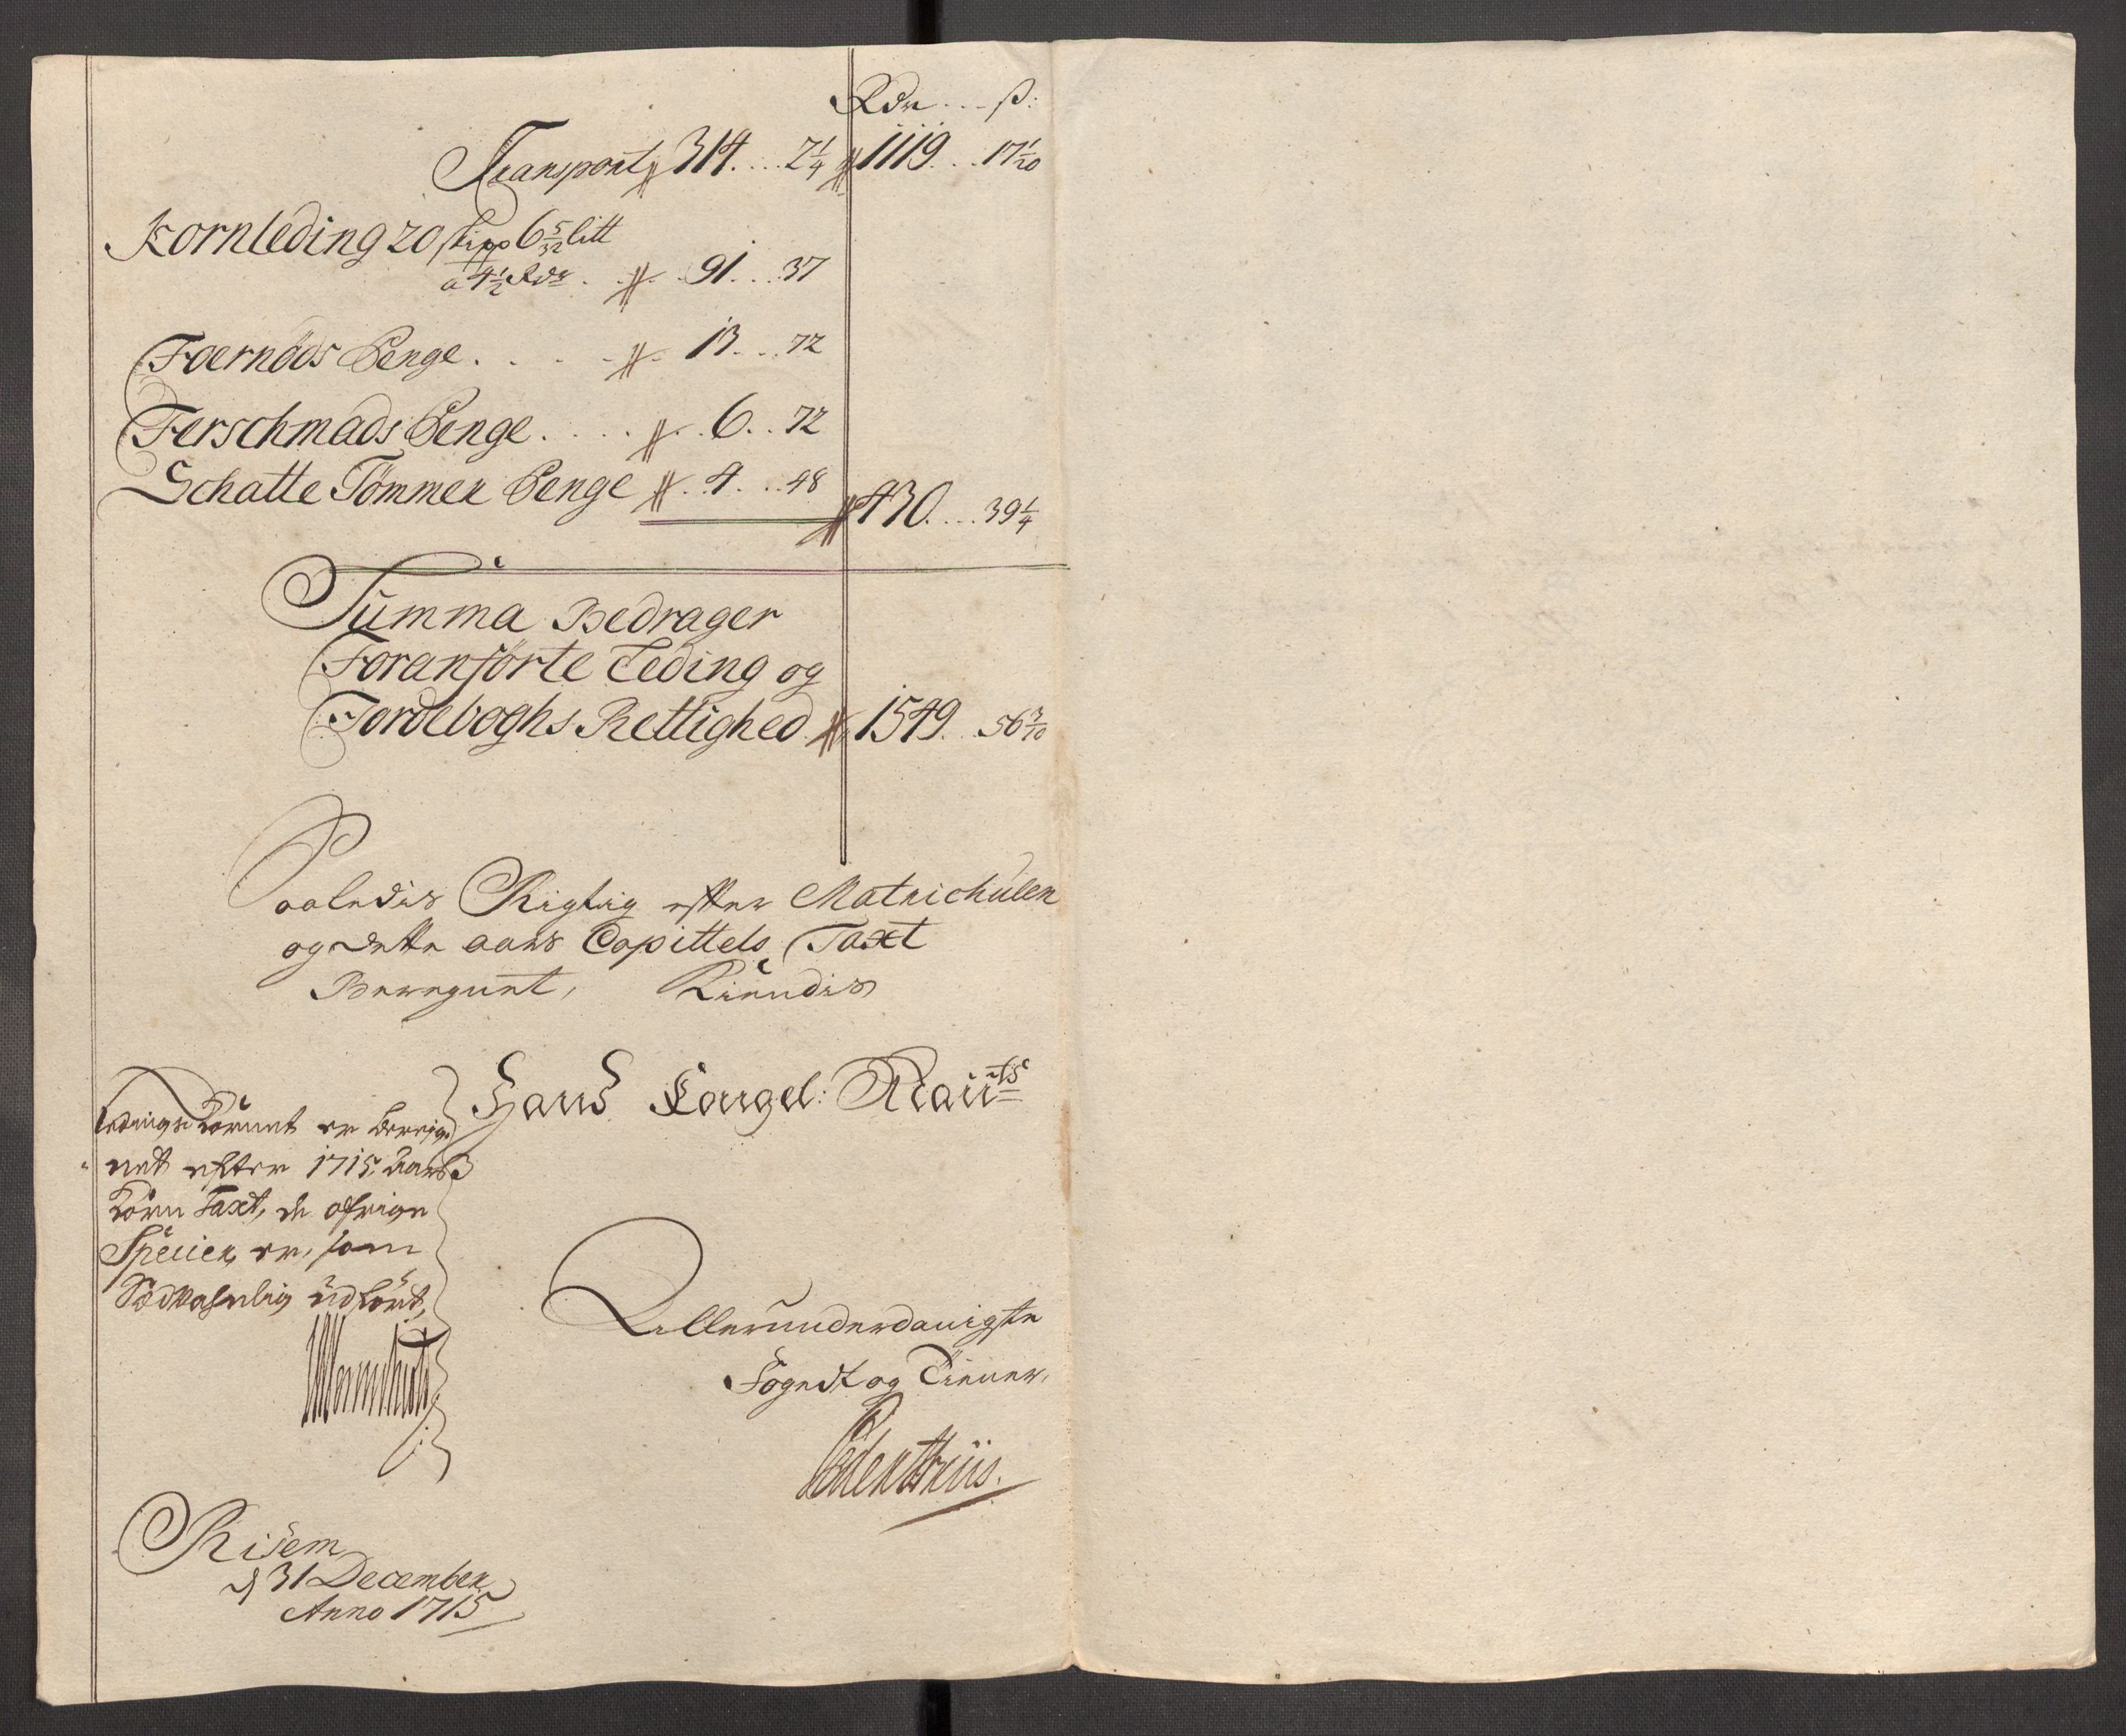 Rdr ... ß:
Transport 314 ... 2¼ 1119 ... 17 1/20
Kornleding 20 skipp 6 5/32 litt
a 4½ Rdr ... 91 ... 37
Foernöds Penge ... 13 ... 72
Ferschmads Penge ... 6 ... 72
Schatte Tömmer Penge 4 ... 48 430 ... 39¼
Summa Bedrager
Foranförte Leding og
Jordeboghs Rettighed 1549 ... 56 3/10
Saaledis Rigtig efter Matrichulen
og dette aars Capittels Taxt
Beregnet, Kiendis
Hans Kongel: Maÿts
Ledings Kornet er bereig
net efter 1715 aars
Korn Taxt, de öfrige
Specier er, som
Sædvahnlig udfört,
Allerunderdanigste
Fogedt og Tiener,
Risem
d 31 December
Anno 1715